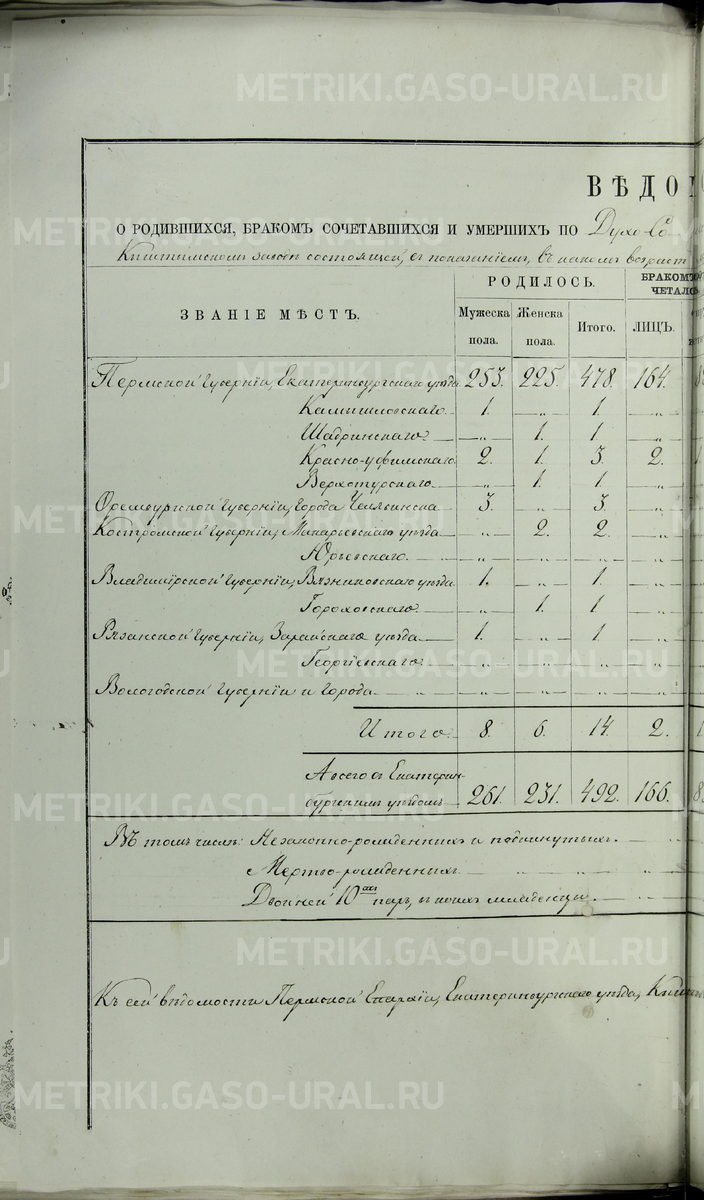 METRIKI.GASO-URAL.RU
ВѢДО
О РОДИВШИХСЯ, БРАКОМЪ СОЧЕТАВШИХСЯ И УМЕРШИХЪ ПО Духо-Со
Кыштымскомъ заводѣ состоящей, съ показаніемъ, въ какомъ возраст
ЗВАНІЕ МѢСТЪ.
РОДИЛОСЬ.
БРАКОМЪ
ЧЕТАЛО
Мужеска пола.
Женска пола.
Итого.
ЛИЦЪ.
Пермской Губерніи, Екатеринбургскаго уѣзда 253. 225. 478. 164.
Камышловскаго 1. „ 1. „
Шадринскаго „ 1. 1 „
Красно-уфимскаго 2. 1. 3. 2.
Верхотурскаго „ 1 1 „
Оренбургской Губерніи, Города Челябинска 3. „ 3. „
Костромской Губерніи, Макарьевскаго уѣзда „ 2. 2. „
Юрьевскаго „ „ „ „
Владимірской Губерніи, Вязниковскаго уѣзда 1. „ 1. „
Гороховскаго „ 1 1 „
Рязанской Губерніи, Зарайскаго уѣзда 1. „ 1 „
Георгіевскаго „ „ „ „
Вологодской Губерніи и Города „ „ „ „
Итого 8. 6. 14. 2.
А всего съ Екатерин-
бургскимъ уѣздомъ 261. 231. 492. 166.
Въ томъ числѣ: Незаконно-рожденныхъ и подкинутыхъ.
Мертво-рожденныхъ
Двойней 10 паръ, въ коихъ младенцы
Къ сей вѣдомости Пермской Епархіи, Екатеринбургскаго уѣзда,